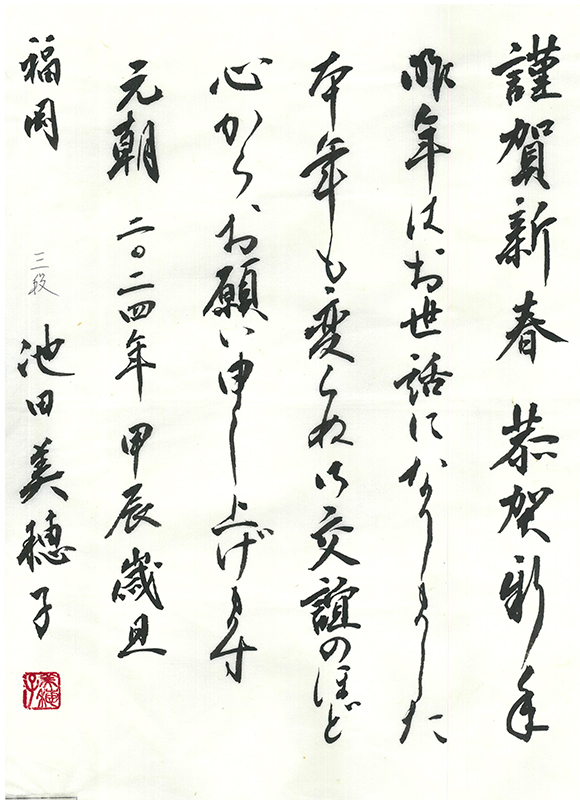 謹賀新春 恭賀新年
昨年はお世話になりました
本年も変らぬご交誼のほど
心からお願い申し上げます
元朝 二〇二四年 甲辰歳旦
福岡 三段 池田美穂子
美穂子